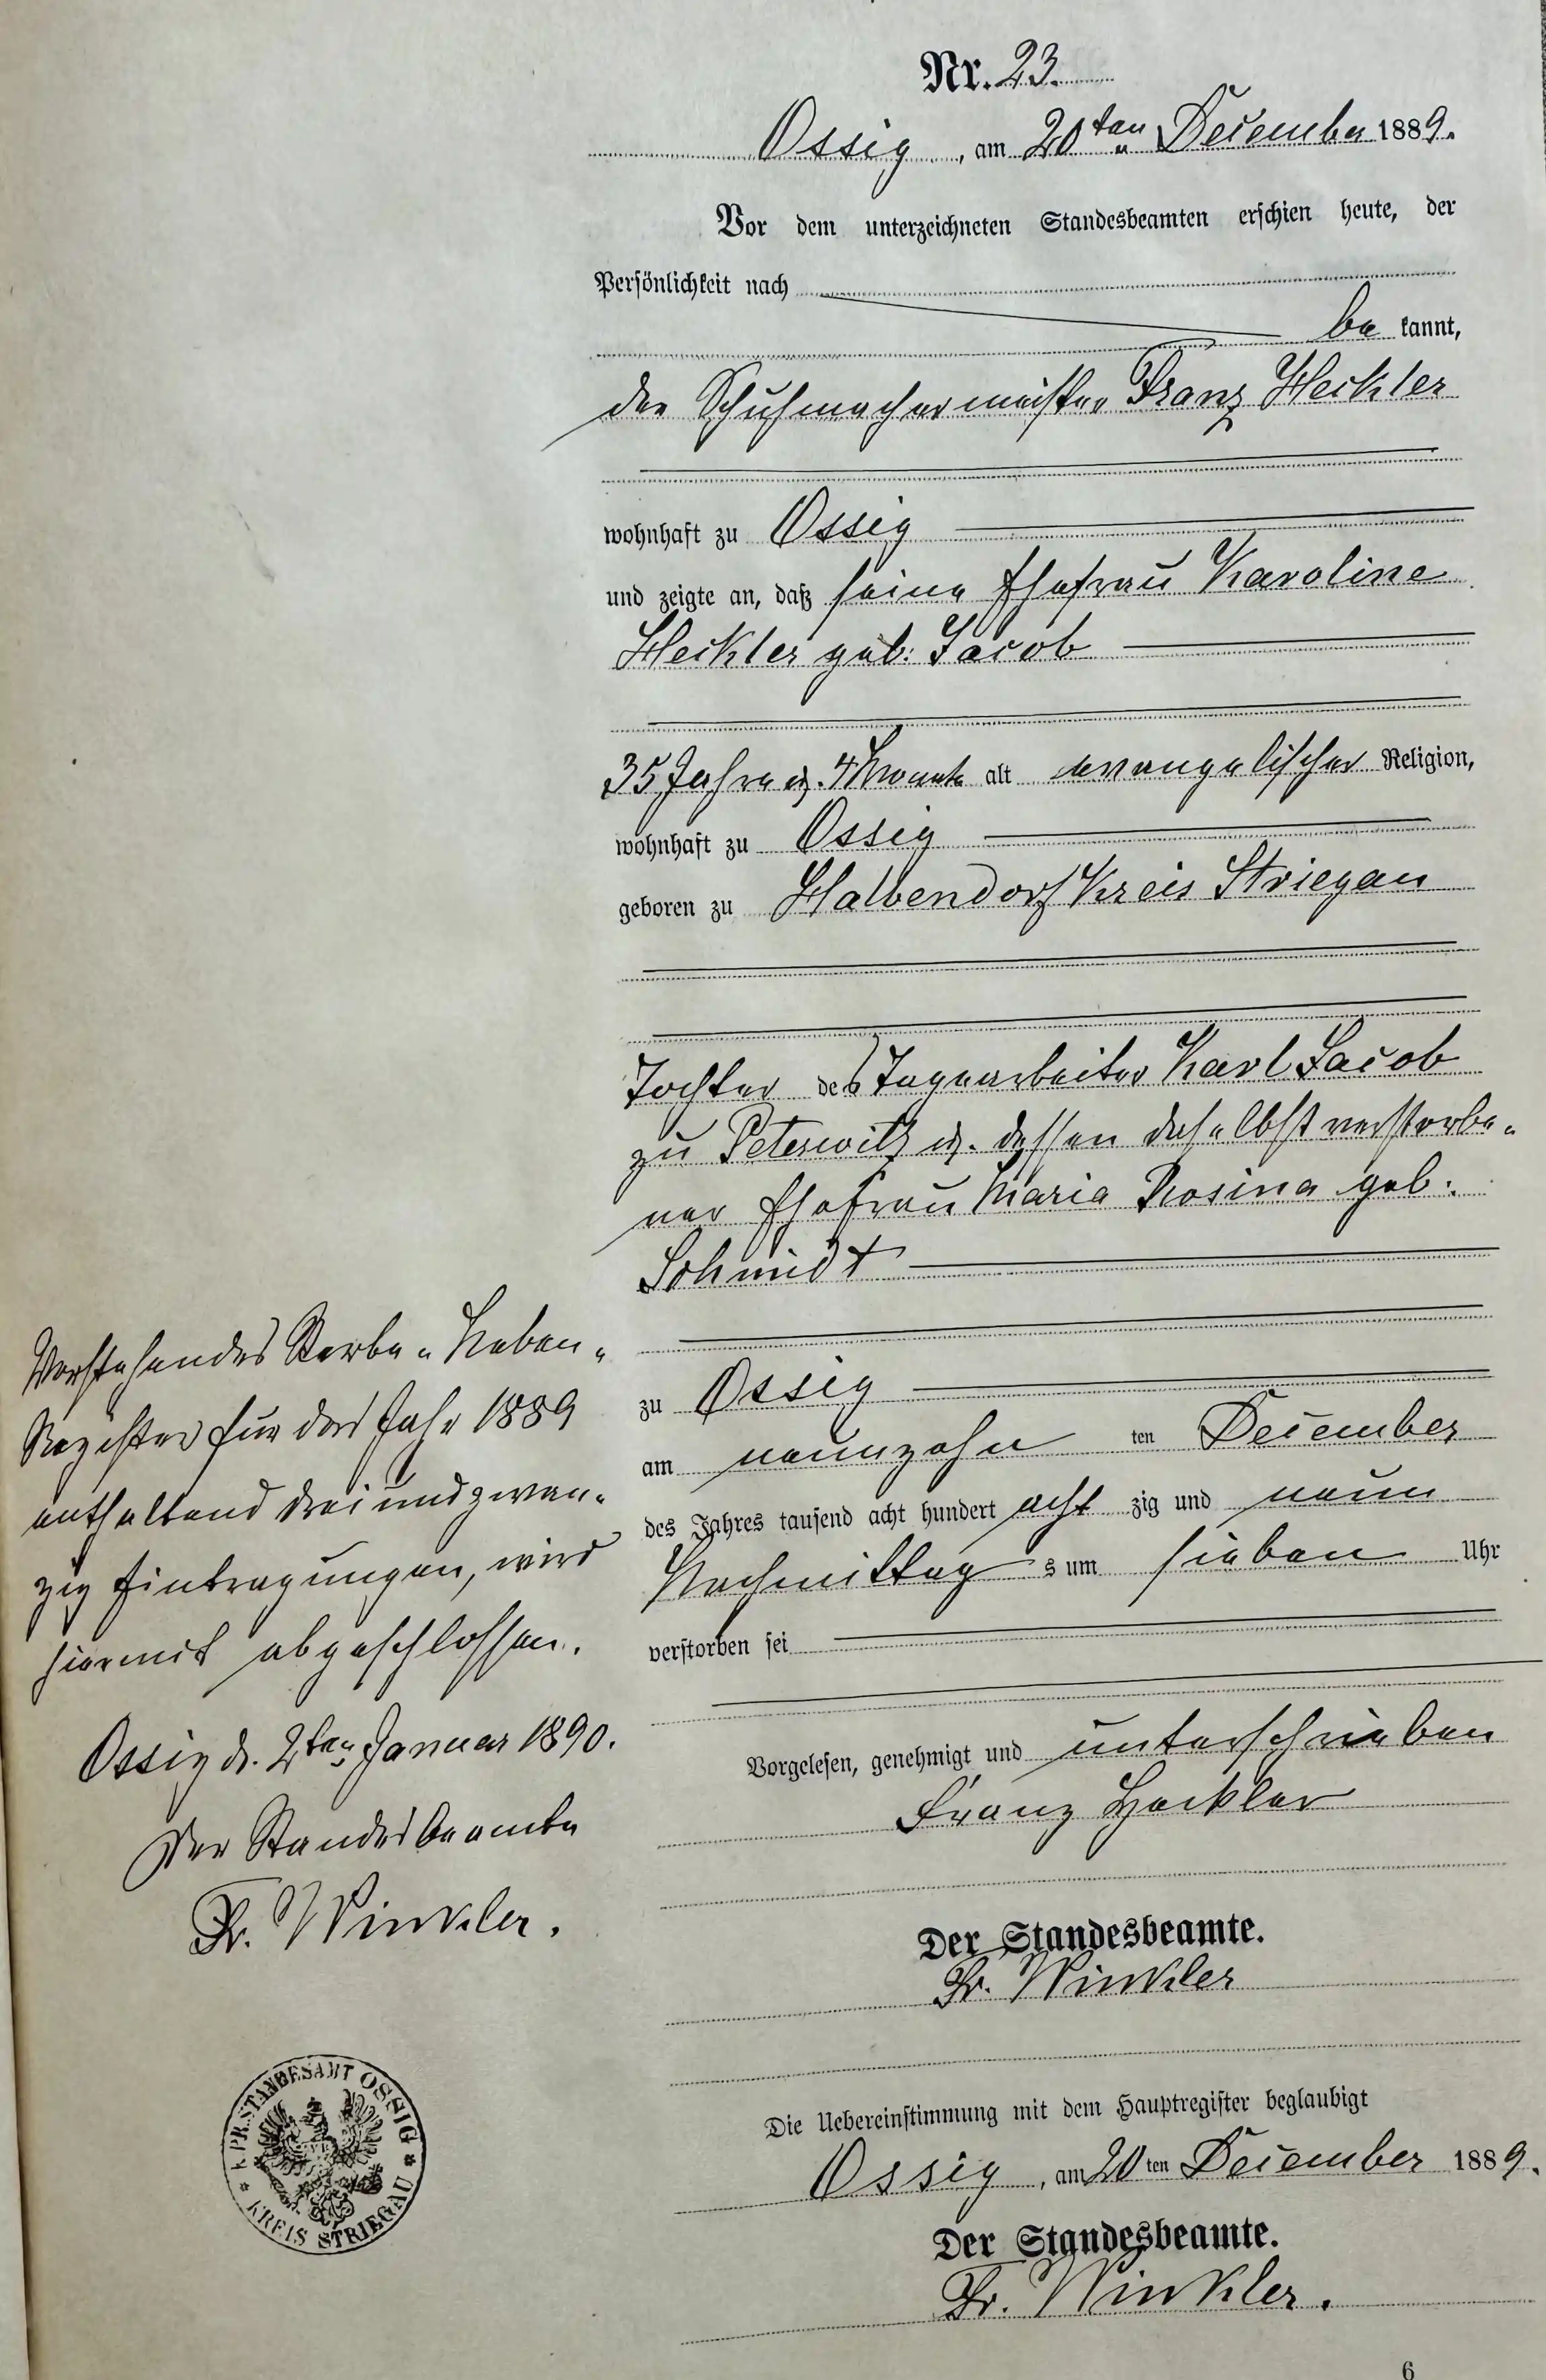 Nr. 23.
Ossig, am 20ten December 1889.
Vor dem unterzeichneten Standesbeamten erschien heute, der
Persönlichkeit nach
be kannt,
der Schuhmachermeister Franz Heckler
wohnhaft zu Ossig
und zeigte an, daß seine Ehefrau Karoline
Heckler geb. Jacob
35 Jahre u. 4 Monate alt evangelischer Religion,
wohnhaft zu Ossig
geboren zu Halbendorf Kreis Striegau
Tochter des Tagearbeiter Karl Jacob
zu Peterwitz u. dessen daselbst verstorbe-
ner Ehefrau Maria Rosina geb.
Schmidt
zu Ossig
am neunzehn ten December
des Jahres tausend acht hundert acht zig und neun
Nachmittag s um sieben Uhr
verstorben sei
Vorgelesen, genehmigt und unterschrieben
Franz Heckler
Der Standesbeamte.
Fr. Winkler
Die Uebereinstimmung mit dem Hauptregister beglaubigt
Ossig, am 20 ten December 1889.
Der Standesbeamte.
Fr. Winkler.
6
Vorstehendes Sterbe-Neben-
Register für das Jahr 1889
enthaltend dreiundzwan-
zig Eintragungen, wird
hiermit abgeschlossen.
Ossig d. 2ten Januar 1890.
Der Standesbeamte
Fr. Winkler.
K. PR. STANDESAMT OSSIG
* KREIS STRIEGAU *